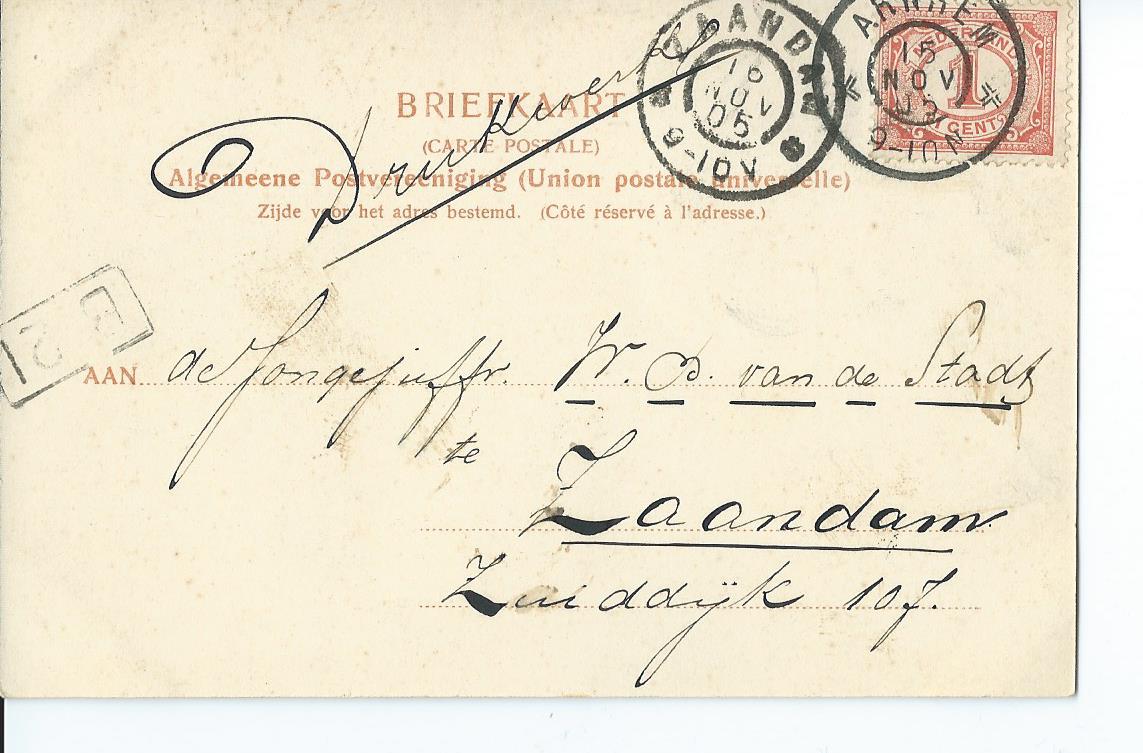 BRIEFKAART
(CARTE POSTALE)
Algemeene Postvereeniging (Union postale universelle)
Zijde voor het adres bestemd. (Côté réservé à l'adresse.)
Drukwerk
ZAANDAM
16
NOV
05
9-10V
ARNHEM
15
NOV
05
9-10N
NEDERLAND
1
CENT
AAN de Jongejuffr. W. B. van de Stadt
te
Zaandam.
Zuiddijk 107.